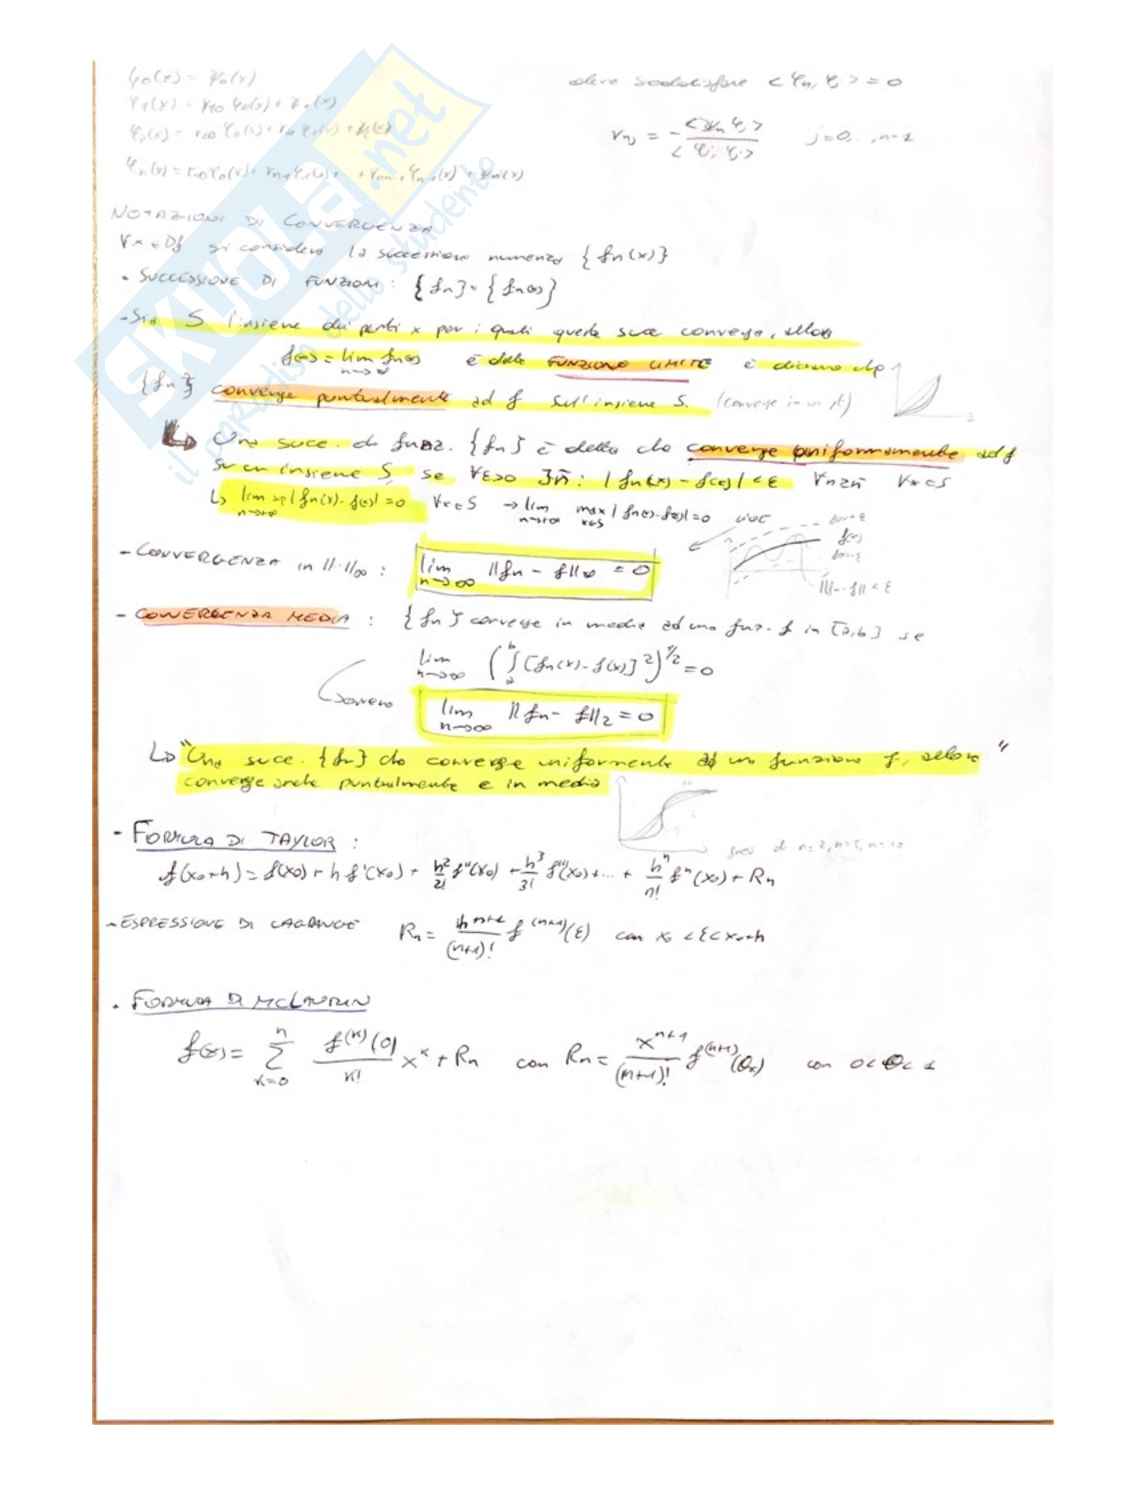 φ₀(x) = ψ₀(x)
deve soddisfare < φn, φj > = 0
φ₁(x) = r₁₀ φ₀(x) + ψ₁(x)
rnj = - <ψn φj> / <φj, φj> j=0, .., n-1
NOTAZIONI DI CONVERGENZA
∀x ∈ Df si considera la successione numerica {fn(x)}
• SUCCESSIONE DI FUNZIONI : {fn} = {fn(x)}
- Sia S l'insieme dei punti x per i quali questa succ converge, allora
f(x) = lim n→∞ fn(x) è detta FUNZIONE LIMITE e diciamo che
{fn} converge puntualmente ad f sull'insieme S. (converge in un pt)
↳ Una succ. di funz. {fn} è detta che converge uniformemente ad f
su un insieme S, se ∀ε>0 ∃ñ : |fn(x) - f(x)| < ε ∀n≥ñ ∀x∈S
↳ lim n→+∞ |fn(x) - f(x)| = 0 ∀x∈S → lim n→+∞ max x∈S |fn(x) - f(x)| = 0
f(x)
||fn - f|| < ε
- CONVERGENZA in ||·||∞ : lim n→∞ ||fn - f||∞ = 0
- CONVERGENZA MEDIA : {fn} converge in media ad una funz. f in [a,b] se
lim n→∞ ( ∫ₐᵇ [fn(x) - f(x)]²)^1/2 = 0
ovvero lim n→∞ ||fn - f||₂ = 0
↳ "Una succ. {fn} che converge uniformemente ad una funzione f, allora "
converge anche puntualmente e in media
- FORMULA DI TAYLOR :
f(x₀+h) = f(x₀) + h f'(x₀) + h²/2! f''(x₀) + h³/3! f'''(x₀) + ... + hⁿ/n! fⁿ(x₀) + Rn
- ESPRESSIONE DI LAGRANGE Rn = hⁿ⁺¹/(n+1)! f⁽ⁿ⁺¹⁾(ξ) con x₀ < ξ < x₀+h
• FORMULA DI MCLAURIN
f(x) = Σ k=0 n f⁽ᵏ⁾(0)/k! xᵏ + Rn con Rn = xⁿ⁺¹/(n+1)! f⁽ⁿ⁺¹⁾(θx) con 0 < θ < 1
SKUOLA.net
il paradiso dello studente